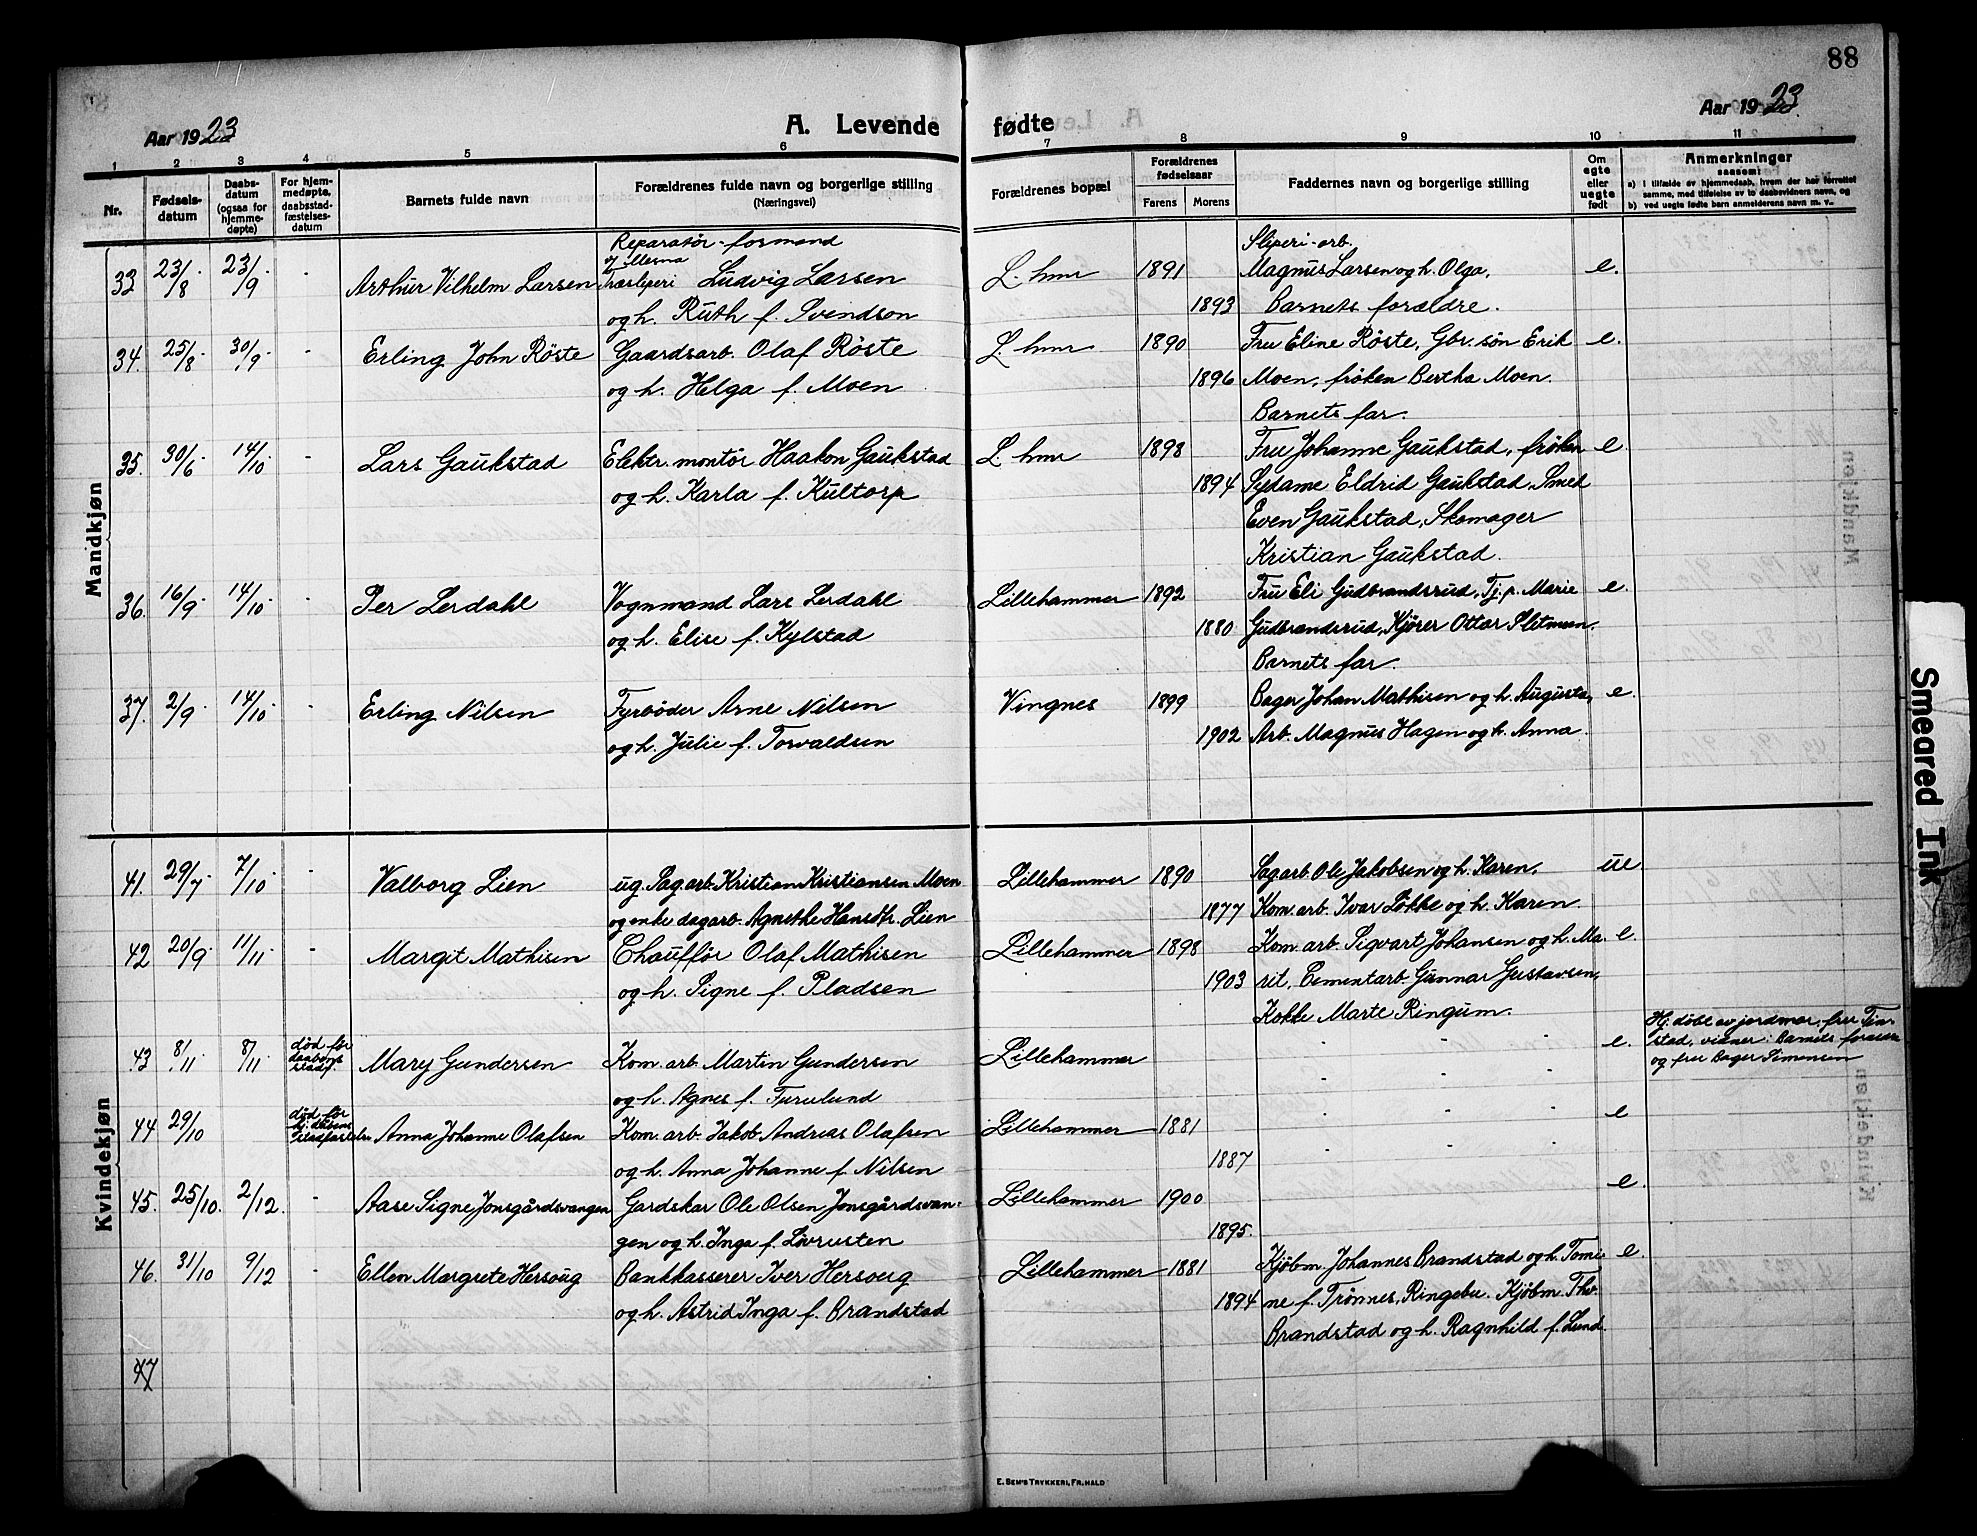 88
Aar 1923
A. Levende fødte
Aar 1923
1 2 3 4 5 6 7 8 9 10 11
Nr.
Fødsels-
datum
Daabs-
datum
(ogsaa for
hjemme-
døpte)
For hjem-
medøpte,
daabsstad-
fæstelses-
datum
Barnets fulde navn
Forældrenes fulde navn og borgerlige stilling
(Næringsvei)
Forældrenes bopæl
Forældrenes
fødselsaar
Farens Morens
Faddernes navn og borgerlige stilling
Om
ægte
eller
uegte
født
Anmerkninger
saasom:
a) i tilfælde av hjemmedaab, hvem der har forrettet
samme, med tilføielse av to daabsvidners navn, og
b) ved uegte fødte barn anmelderens navn m. v.
Mandkjøn
Reparatør-formand Sliperi-arb.
33 23/8 23/9 - Arthur Vilhelm Larsen Træsliperi Ludvig Larsen L. hmr 1891 Magnus Larsen og h. Olga, e.
og h. Ruth f. Svendson 1893 Barnets forældre.
34. 25/8 30/9 - Erling John Röste Gaardsarb. Olaf Röste L. hmr 1890 Fru Eline Röste, Gbr. sön Erik e.
og h. Helga f. Moen 1896 Moen, fröken Bertha Moen.
Barnets far.
35. 30/6 14/10 - Lars Gaukstad Elektr. montör Haakon Gaukstad L. hmr 1898 Fru Johanne Gaukstad, fröken e.
og h. Karla f. Kultorp 1894 Sydame Eldrid Gaukstad, Smed
Even Gaukstad, Skomager
Kristian Gaukstad.
36. 16/9 14/10 - Per Lerdahl Vognmand Lars Lerdahl Lillehammer 1892 Fru Eli Gudbrandsrud, Tj.p. Marie e.
og h. Elise f. Kylstad 1880 Gudbrandsrud, Kjörer Ottar Sletmoen.
Barnets far.
37. 2/9 14/10 - Erling Nilsen Fyrböder Arne Nilsen Vingnes 1899 Bager Johan Mathisen og h. Augusta, e.
og h. Julie f. Torvaldsen 1902 Arb. Magnus Hagen og h. Anna.
Kvindekjøn
41. 29/7 7/10 - Valborg Lien ug. Sag.arb. Kristian Kristiansen Moen Lillehammer 1890 Sagarb. Ole Jakobsen og h. Karen, ue
og enke dagarb. Agnethe Hansdtr. Lien 1877 Kom. arb. Ivar Lökke og h. Karen
42 20/9 11/11 - Margit Mathisen Chaufför Olaf Mathisen Lillehammer 1898 Kom. arb. Sigvart Johansen og h. Ma- e.
og h. Signe f. Pladsen 1903 rit, Cementarb. Gunnar Gustavsen,
Kokke Marte Ringum.
43 8/11 8/11 död för daabens stadf. Mary Gundersen Kom. arb. Martin Gundersen Lillehammer - - - e. Hj. döbt av jordmor, fru Tin-
stad, vidner: Barnets forældre
og fru Bager Simensen
og h. Agnes f. Furulund - - -
44 29/10 död för hj. daabens Anna Johanne Olafsen Kom. arb. Jakob Andreas Olafsen Lillehammer 1881 - - - e
og h. Anna Johanne f. Nilsen 1887 - - -
45. 25/10. 2/12. - Aase Signe Jonsgårdsvangen Gardskar Ole Olsen Jonsgårdsvan- Lillehammer 1900 e.
gen og h. Inga f. Lövrusten 1895.
46. 31/10 9/12 - Ellen Margrete Hersoug Bankkasserer Iver Hersoug Lillehammer 1881 Kjöbm. Johannes Brandstad og h. Tomi- e.
og h. Astrid Inga f. Brandstad 1894 ne f. Trönnes, Ringebu. Kjöbm. Thv.
Brandstad og h. Ragnhild f. Lund.
47
E. Sem's Trykkeri, Fr.hald
Smeared Ink